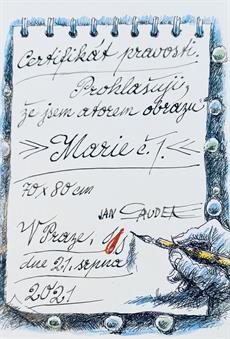 Certifikát pravosti.
Prohlašuji,
že jsem autorem obrazu
» Marie č. 1. «
70 x 80 cm
JAN SAUDEK
V Praze,
dne 21. srpna
2021